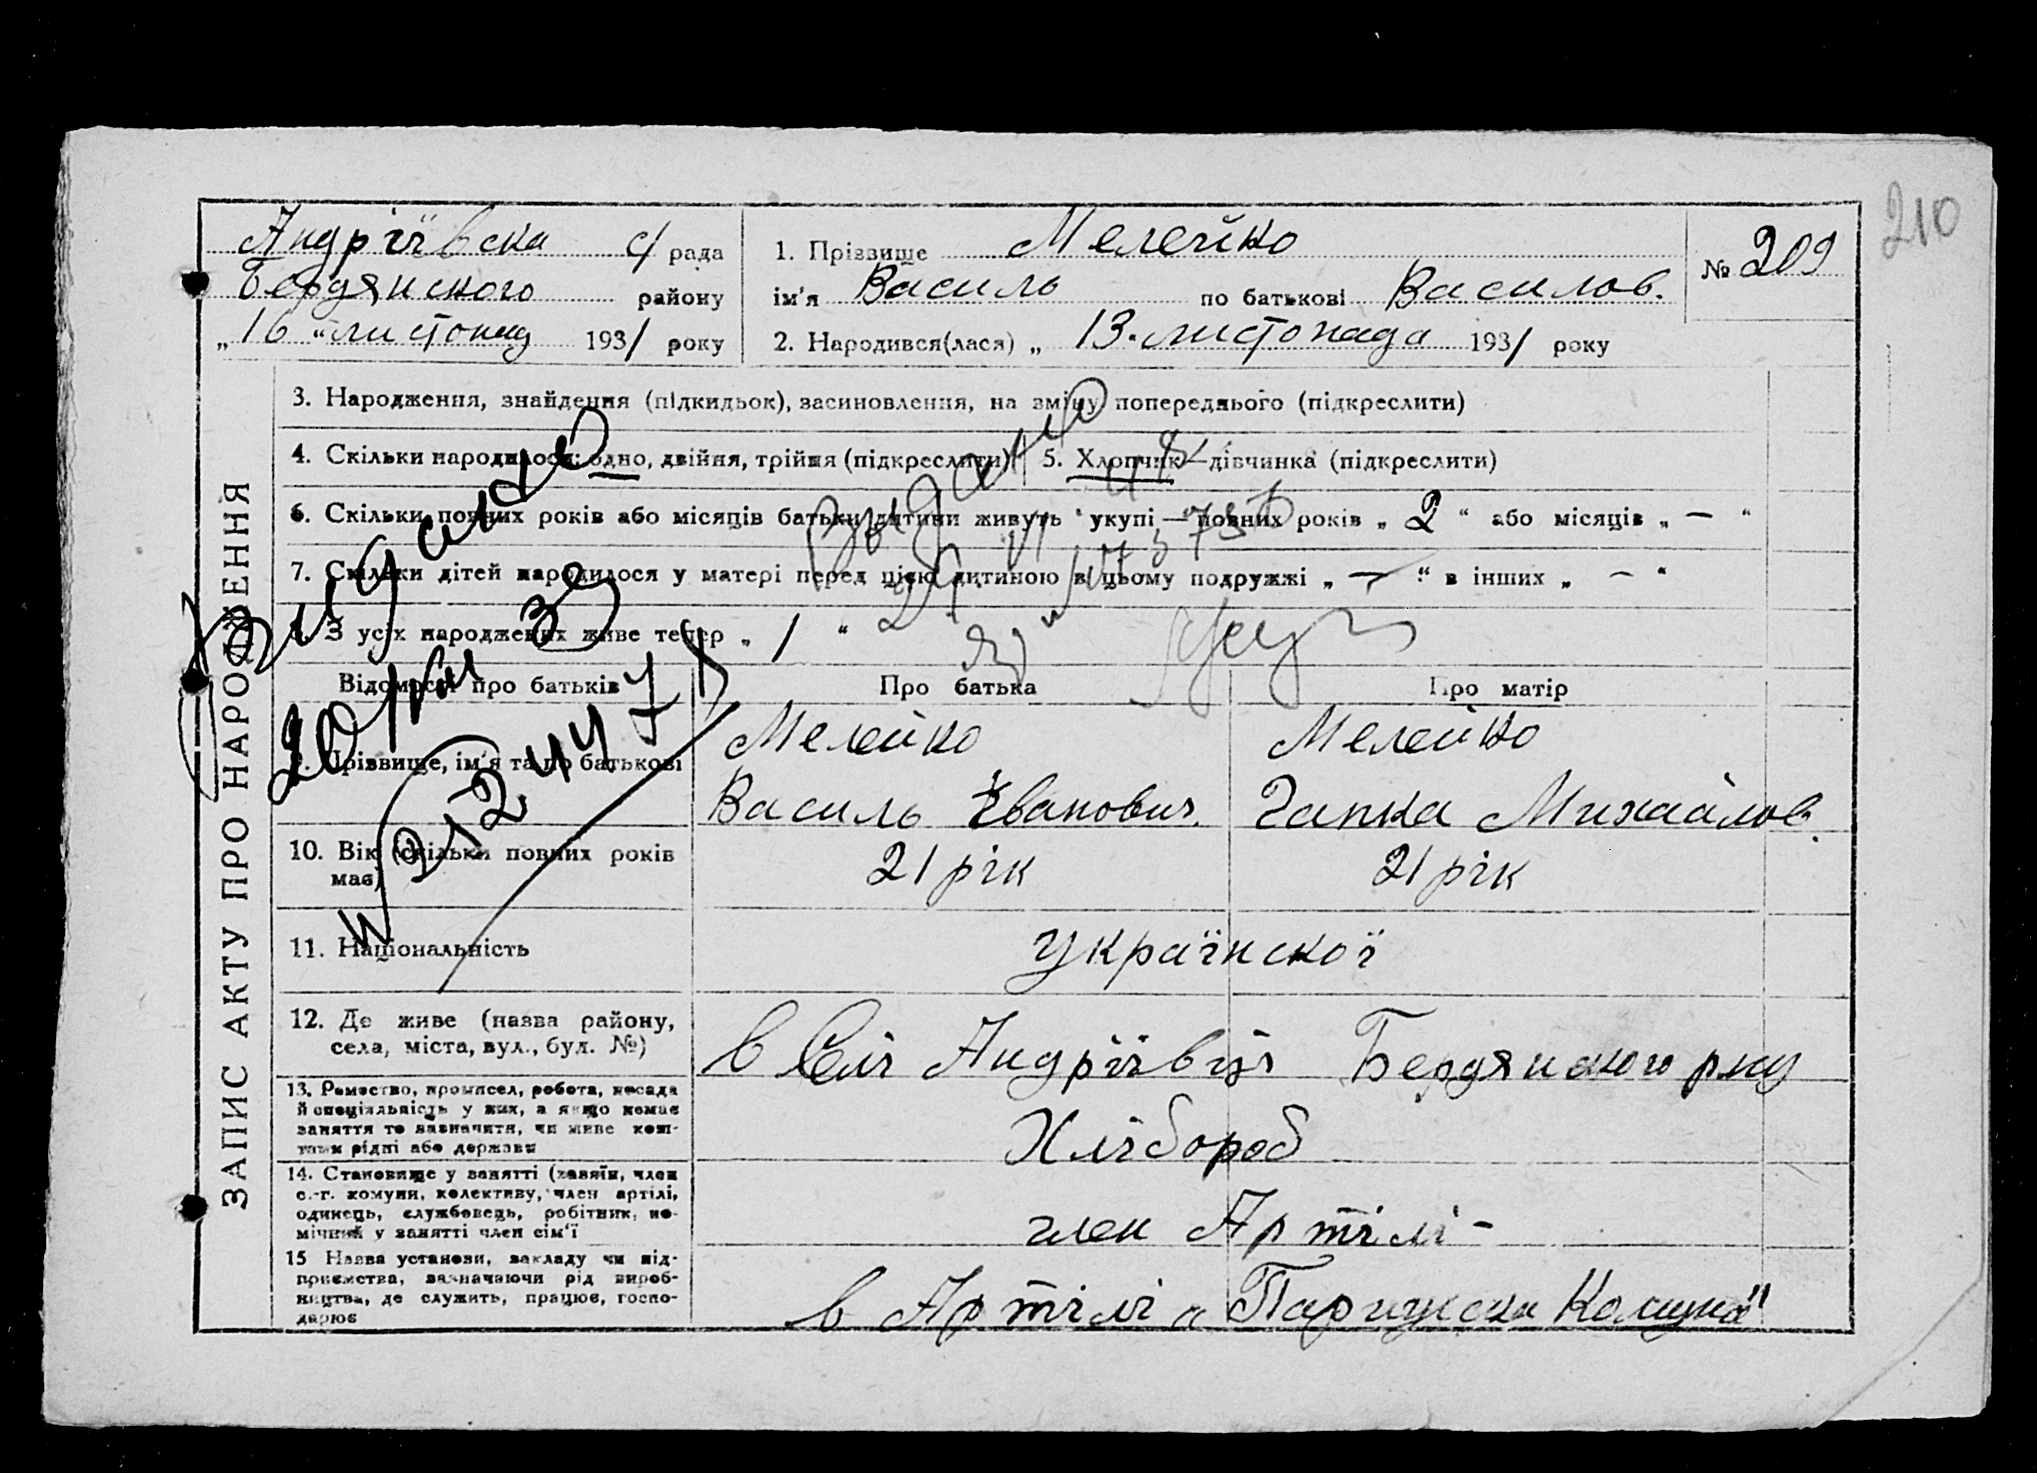 210
Андріївска с/ рада
Бердянского району
„16“ листопад 1931 року
1. Прізвище Мелейко
ім'я Василь по батькові Василов.
№ 209
2. Народився(лася) „13. листопада 1931 року
ЗАПИС АКТУ ПРО НАРОДЖЕННЯ
3. Народження, знайдення (підкидьок), засиновлення, на зміну попереднього (підкреслити)
4. Скільки народилося: одно, двійня, трійня (підкреслити) 5. Хлопчик—дівчинка (підкреслити)
6. Скільки повних років або місяців батьки дитини живуть укупі,—повних років „ 2 “ або місяців „ — “
7. Скільки дітей народилося у матері перед цією дитиною в цьому подружжі „ — “ в інших „ — “
8. З усіх народжених живе тепер „ 1 “
Видано
Видано
Відомості про батьків
Про батька
Про матір
9. Прізвище, ім'я та по батькові
Мелейко
Василь Іванович.
Мелейко
Ганка Михайлов.
10. Вік (скільки повних років має)
21 рік
21 рік
11. Національність
української
12. Де живе (назва району,
села, міста, вул., буд. №)
в Селі Андріївці Бердянского рну
13. Ремество, промисел, робота, посада
й спеціяльність у них, а якщо немає
заняття то зазначити, чи живе кош-
тами рідні або держави
Хлібороб
14. Становище у занятті (хазяїн, член
с.-г. комуни, колективу, член артілі,
одинець, службовець, робітник, по-
мічний у занятті член сім'ї
член Артілі -
15 Назва установи, закладу чи під-
приємства, зазначаючи рід вироб-
ництва, де служить, працює, госпо-
дарює
в Артілі „Парижска Комуна"